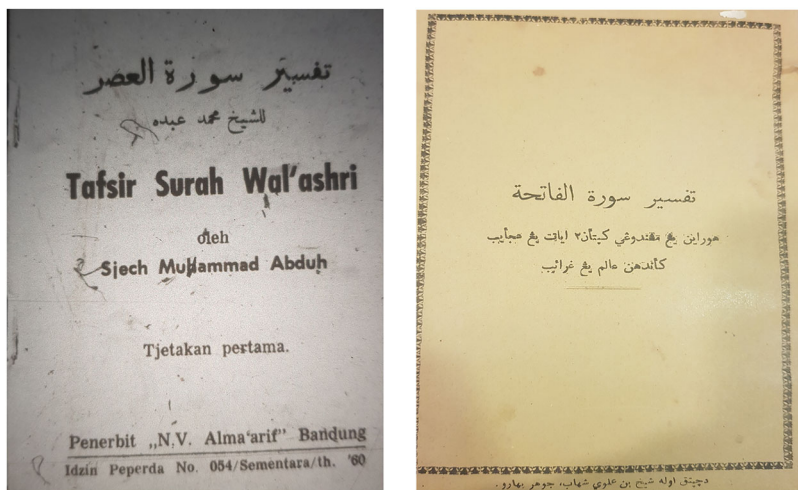 تفسير سورة العصر
للشيخ محمد عبده
Tafsir Surah Wal'ashri
oleh
Sjech Muhammad Abduh
Tjetakan pertama.
Penerbit „N.V. Alma'arif” Bandung
Idzin Peperda No. 054/Sementara/th. '60
تفسير سورة الفاتحة
هوراين يڠ مڠندوڠي كيتأن٢ اياتت يڠ عجايب
كأندهن عالم يڠ غرائب
دچيتق اوله شيخ بن علوي شهاب، جوهر بهارو.